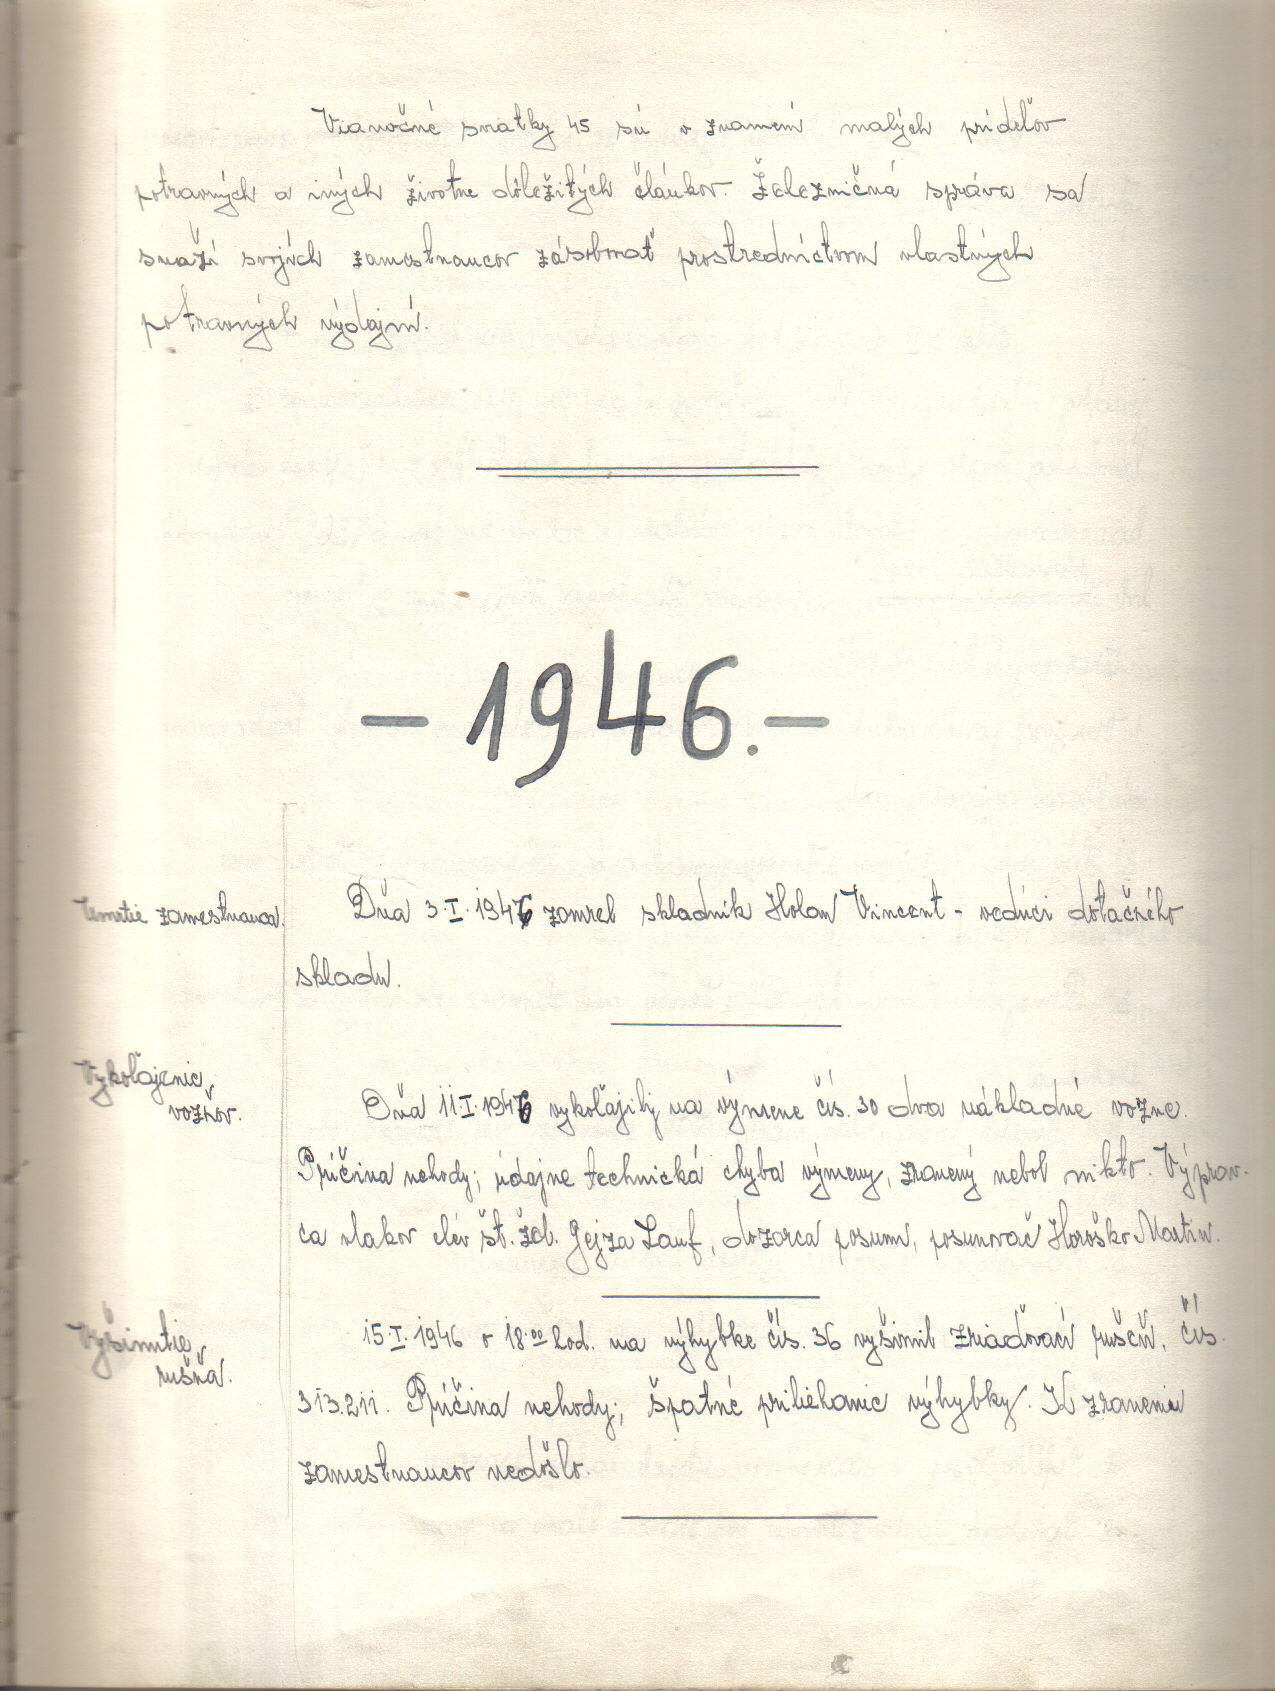 Vianočné sviatky 45 sú v znamení malých prídeľov
potravných a iných životne dôležitých článkov. Železničná správa sa
snaží svojich zamestnancov zásobovať prostredníctvom vlastných
potravných výdajní.
- 1946. -
Úmrtie zamestnanca.
Dňa 3.I.1946 zomrel skladník Holan Vincent - vedúci dotačného
skladu.
Vykoľajenie
vozňov.
Dňa 11.I.1946 vykoľajily na výmene čís. 30 dva nákladné vozne.
Príčina nehody; údajne technická chyba výmeny, zranený nebol nikto. Výprav-
ca vlakov elév št. žel. Gejza Lauf, dozorca posunu, posunovač Horoško Martin.
Vyšinutie
rušňa.
15.I.1946 o 18.00 hod. na výhybke čís. 36 vyšinul zriaďovací rušeň, čís.
313.211. Príčina nehody; špatné priliehanie výhybky. K zraneniu
zamestnancov nedošlo.